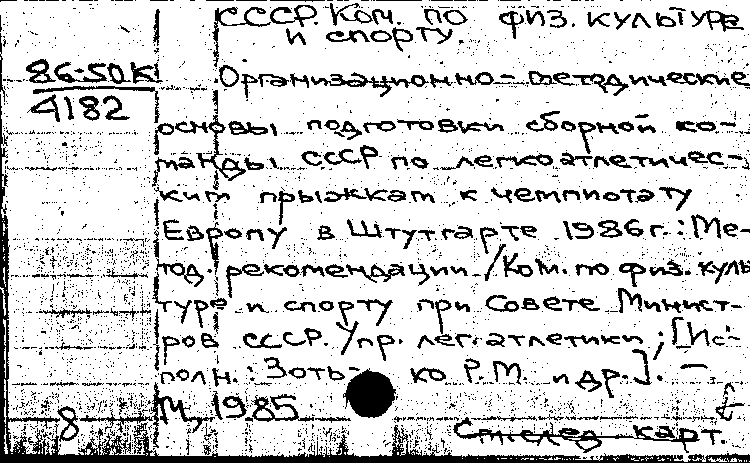 СССР. Ком. по физ. культуре
и спорту.
86-50К
4182
Организационно-методические
основы подготовки сборной ко-
манды СССР по легкоатлетичес-
ким прыжкам к чемпионату
Европы в Штутгарте 1986 г.: Ме-
тод. рекомендации / Ком. по физ. куль
туре и спорту при Совете Минист-
ров СССР. Упр. лег. атлетики; [Ис-
полн.: Зоть- ко Р.М. и др.]. —
М, 1985
8
См. след. карт.